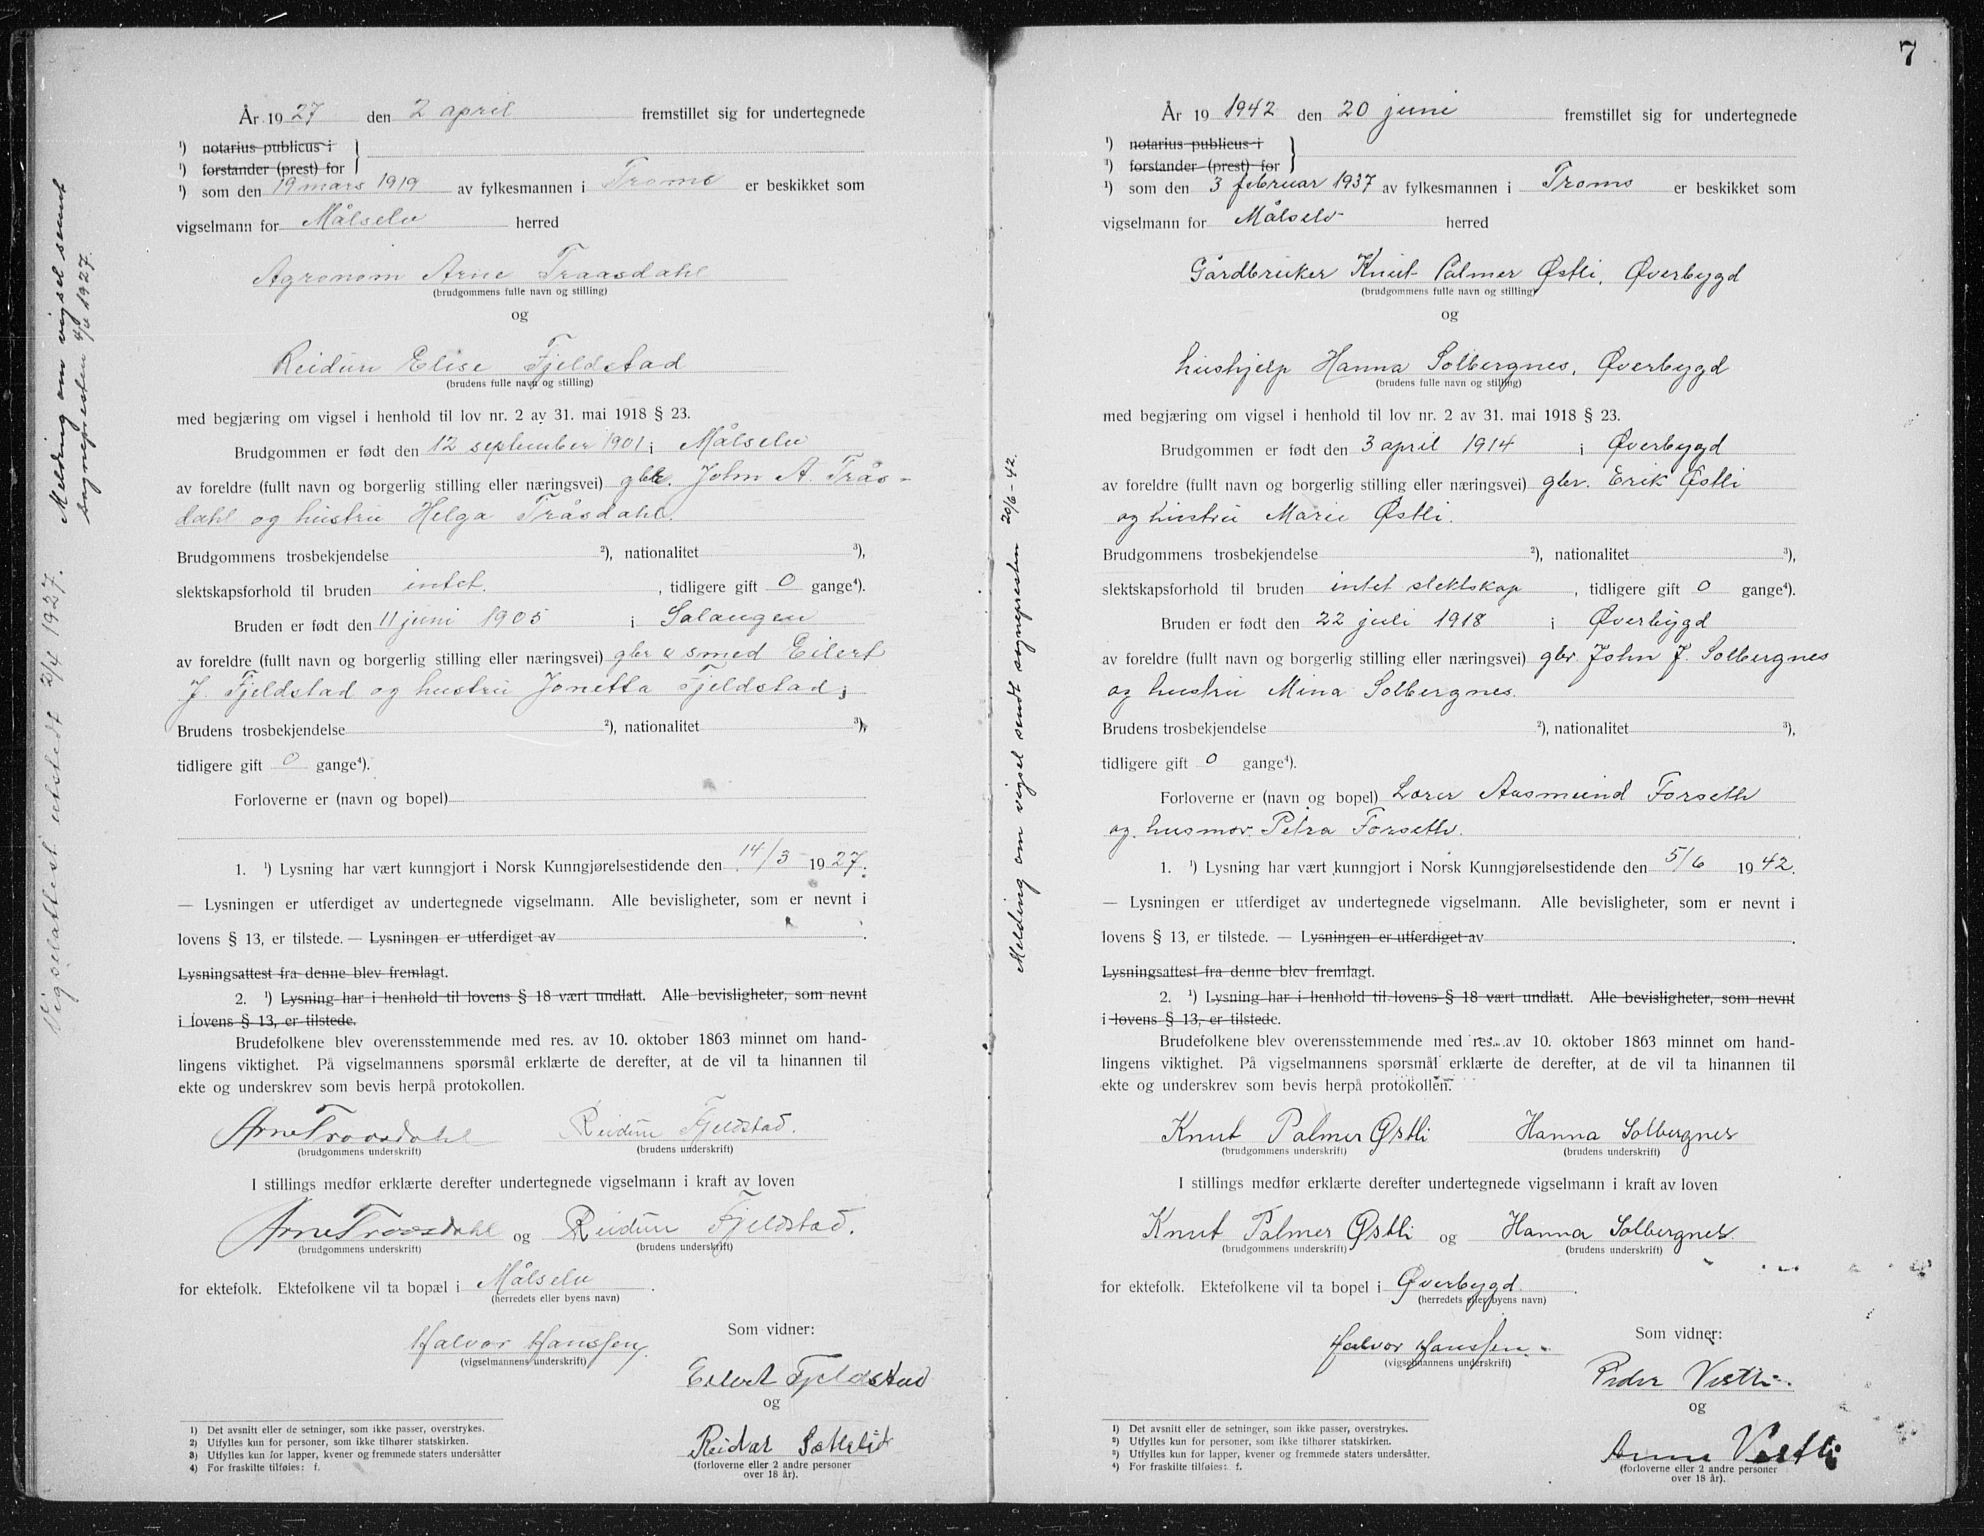 År 1927 den 2 april fremstillet sig for undertegnede
¹) notarius publicus i
¹) forstander (prest) for
¹) som den 19 mars 1919 av fylkesmannen i Troms er beskikket som
vigselmann for Målselv herred
Agronom Arne Traasdahl
(brudgommens fulle navn og stilling)
og
Reidun Elise Fjeldstad
(brudens fulle navn og stilling)
med begjæring om vigsel i henhold til lov nr. 2 av 31. mai 1918 § 23.
Brudgommen er født den 12 september 1901 i Målselv
av foreldre (fullt navn og borgerlig stilling eller næringsvei) gbr. John A. Trås-
dahl og hustru Helga Tråsdahl.
Brudgommens trosbekjendelse ²), nationalitet ³),
slektskapsforhold til bruden intet. , tidligere gift 0 gange⁴).
Bruden er født den 11 juni 1905 i Salangen
av foreldre (fullt navn og borgerlig stilling eller næringsvei) gbr & smed Eilert
J. Fjeldstad og hustru Jonetta Fjeldstad;
Brudens trosbekjendelse ²), nationalitet ³),
tidligere gift 0 gange⁴).
Forloverne er (navn og bopel)
1. ¹) Lysning har vært kunngjort i Norsk Kunngjørelsestidende den 14/3 1927.
— Lysningen er utferdiget av undertegnede vigselmann. Alle bevisligheter, som er nevnt i
lovens § 13, er tilstede. — Lysningen er utferdiget av
Lysningsattest fra denne blev fremlagt.
2. ¹) Lysning har i henhold til lovens § 18 vært undlatt. Alle bevisligheter, som nevnt
i lovens § 13, er tilstede.
Brudefolkene blev overensstemmende med res. av 10. oktober 1863 minnet om hand-
lingens viktighet. På vigselmannens spørsmål erklærte de derefter, at de vil ta hinannen til
ekte og underskrev som bevis herpå protokollen.
Arne Traasdahl Reidun Fjeldstad.
(brudgommens underskrift) (brudens underskrift)
I stillings medfør erklærte derefter undertegnede vigselmann i kraft av loven
Arne Traasdahl og Reidun Fjeldstad.
(brudgommens underskrift) (brudens underskrift)
for ektefolk. Ektefolkene vil ta bopæl i Målselv.
(herredets eller byens navn)
Halvor Hanssen.
(vigselmannens underskrift)
Som vidner:
Eilert Fjeldstad
og
Reidar
(forloverne eller 2 andre personer
over 18 år).
1) Det avsnitt eller de setninger, som ikke passer, overstrykes.
2) Utfylles kun for personer, som ikke tilhører statskirken.
3) Utfylles kun for lapper, kvener og fremmede staters undersåtter
4) For fraskilte tilføies: f.
Vigselattest utstedt 2/4 1927.
Melding om vigsel sendt
sognepresten 4/4 1927.
7
År 19 1942 den 20 juni fremstillet sig for undertegnede
¹) notarius publicus i
¹) forstander (prest) for
¹) som den 3 februar 1937 av fylkesmannen i Troms er beskikket som
vigselmann for Målselv herred
Gårdbruker Knut Palmer Østli, Øverbygd
(brudgommens fulle navn og stilling)
og
hushjelp Hanna Solbergnes, Øverbygd
(brudens fulle navn og stilling)
med begjæring om vigsel i henhold til lov nr. 2 av 31. mai 1918 § 23.
Brudgommen er født den 3 april 1914 i Øverbygd
av foreldre (fullt navn og borgerlig stilling eller næringsvei) gbr. Erik Østli
og hustru Marie Østli.
Brudgommens trosbekjendelse ²), nationalitet ³),
slektskapsforhold til bruden intet slektskap , tidligere gift 0 gange⁴).
Bruden er født den 22 juli 1918 i Øverbygd
av foreldre (fullt navn og borgerlig stilling eller næringsvei) gbr. John J. Solbergnes
og hustru Mina Solbergnes.
Brudens trosbekjendelse ²), nationalitet ³),
tidligere gift 0 gange⁴).
Forloverne er (navn og bopel) Lærer Aasmund Forseth
og husmor Petra Forseth.
1. ¹) Lysning har vært kunngjort i Norsk Kunngjørelsestidende den 5/6 1942.
— Lysningen er utferdiget av undertegnede vigselmann. Alle bevisligheter, som er nevnt i
lovens § 13, er tilstede. — Lysningen er utferdiget av
Lysningsattest fra denne blev fremlagt.
2. ¹) Lysning har i henhold til lovens § 18 vært undlatt. Alle bevisligheter, som nevnt
i lovens § 13, er tilstede.
Brudefolkene blev overensstemmende med res. av 10. oktober 1863 minnet om hand-
lingens viktighet. På vigselmannens spørsmål erklærte de derefter, at de vil ta hinannen til
ekte og underskrev som bevis herpå protokollen.
Knut Palmer Østli Hanna Solbergnes
(brudgommens underskrift) (brudens underskrift)
I stillings medfør erklærte derefter undertegnede vigselmann i kraft av loven
Knut Palmer Østli og Hanna Solbergnes.
(brudgommens underskrift) (brudens underskrift)
for ektefolk. Ektefolkene vil ta bopel i Øverbygd.
(herredets eller byens navn)
Halvor Hanssen.
(vigselmannens underskrift)
Som vidner:
Peder Vestli.
og
Anna Vestli
(forloverne eller 2 andre personer
over 18 år).
1) Det avsnitt eller de setninger, som ikke passer, overstrykes.
2) Utfylles kun for personer, som ikke tilhører statskirken.
3) Utfylles kun for lapper, kvener og fremmede staters undersåtter.
4) For fraskilte tilføies: f.
Melding om vigsel sendt sognepresten 20/6-42.